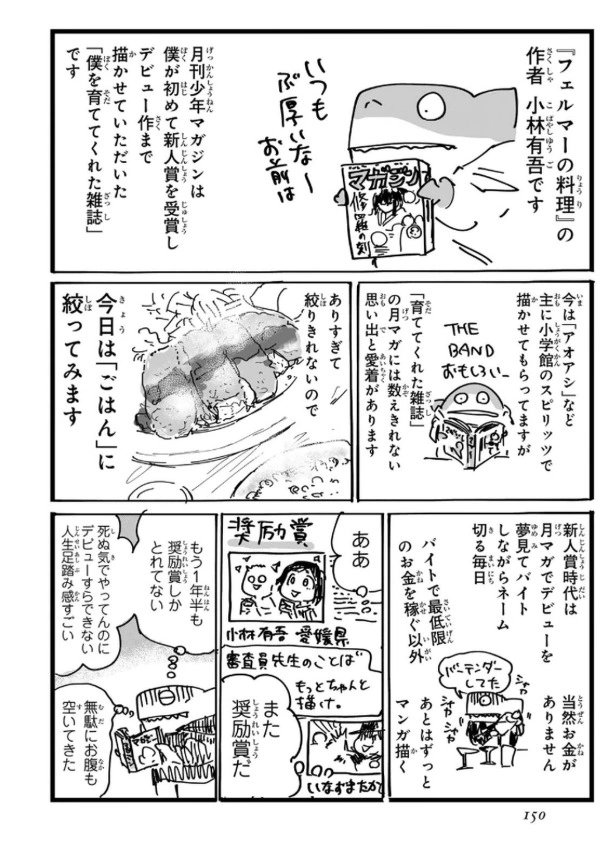 『フェルマーの料理』の
作者 小林有吾です
いつも
ぶ厚いなー
お前は
マガジン
修羅の刻
月刊少年マガジンは
僕が初めて新人賞を受賞し
デビュー作まで
描かせていただいた
「僕を育ててくれた雑誌」
です
今は「アオアシ」など
主に小学館のスピリッツで
描かせてもらってますが
THE
BAND
おもしろい〜
「育ててくれた雑誌」
の月マガには数えきれない
思い出と愛着があります
ありすぎて
絞りきれないので
今日は「ごはん」に
絞ってみます
新人賞時代は
月マガでデビューを
夢見てバイト
しながらネーム
切る毎日
当然お金が
ありません
バーテンダー
してた
シャカ
シャカ
バイトで最低限
のお金を稼ぐ以外
あとはずっと
マンガ描く
ああ
奨励賞
小林有吾 愛媛県
審査員先生のことば
もっとちゃんと
描け。
また
奨励賞だ
いなずまたかて
もう1年半も
奨励賞しか
とれてない
死ぬ気でやってんのに
デビューすらできない
人生足踏み感すごい
無駄にお腹も
空いてきた
150